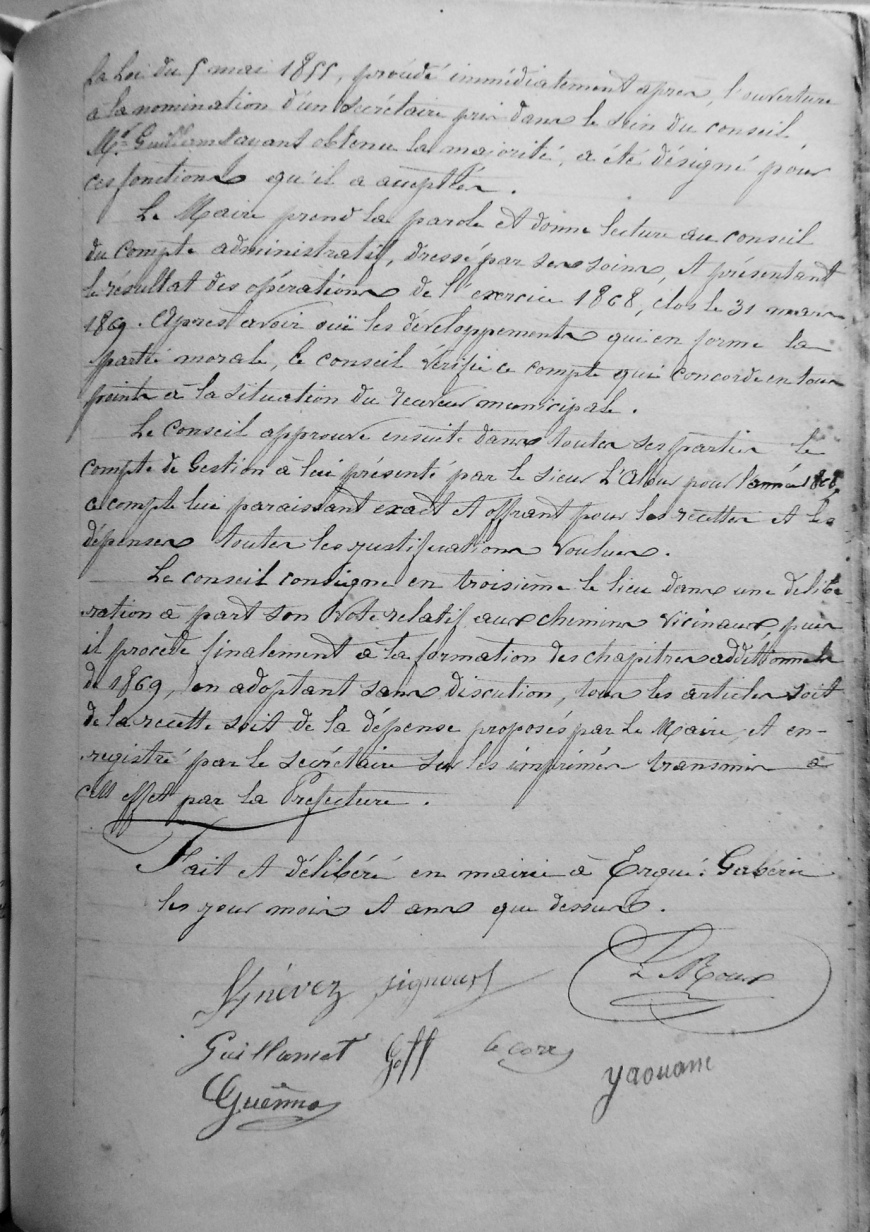 la Loi du 5 mai 1855, procédé immédiatement après, l'ouverture
a la nomination d'un secrétaire pris dans le sein du conseil
Mr. Guillamet ayant obtenu la majorité, a été désigné pour
ces fonctions qu'il a acceptées.
Le Maire prend la parole et donne lecture au conseil
du compte administratif, dressé par ses soins, et présentant
le résultat des opérations de l'exercice 1868, clos le 31 mars
1869. Après avoir ouï les développements qui en forme la
partie morale, le conseil vérifie ce compte qui concorde en tous
points à la situation du receveur municipale.
Le conseil approuve ensuite dans toutes ses parties le
compte de Gestion à lui présenté par le sieur L'Alour pour l'année 1868
ce compte lui paraissant exact et offrant pour les recettes et les
dépenses toutes les justifications voulues.
Le conseil consigne en troisième le lieu dans une délibé-
ration à part son vote relatif aux chemins vicinaux, puis
il procède finalement à la formation des chapitres additionnels
de 1869, en adoptant sans discution, tous les articles soit
de la recette soit de la dépense proposés par Le Maire, et en-
registré par le secrétaire sur les imprimés transmis à
cett effet par la Préfecture.
Fait et délibéré en mairie à Ergué-Gabéric
les jour mois et ans que dessus.
Le Roux
Guillamet Goff
Yaouanc